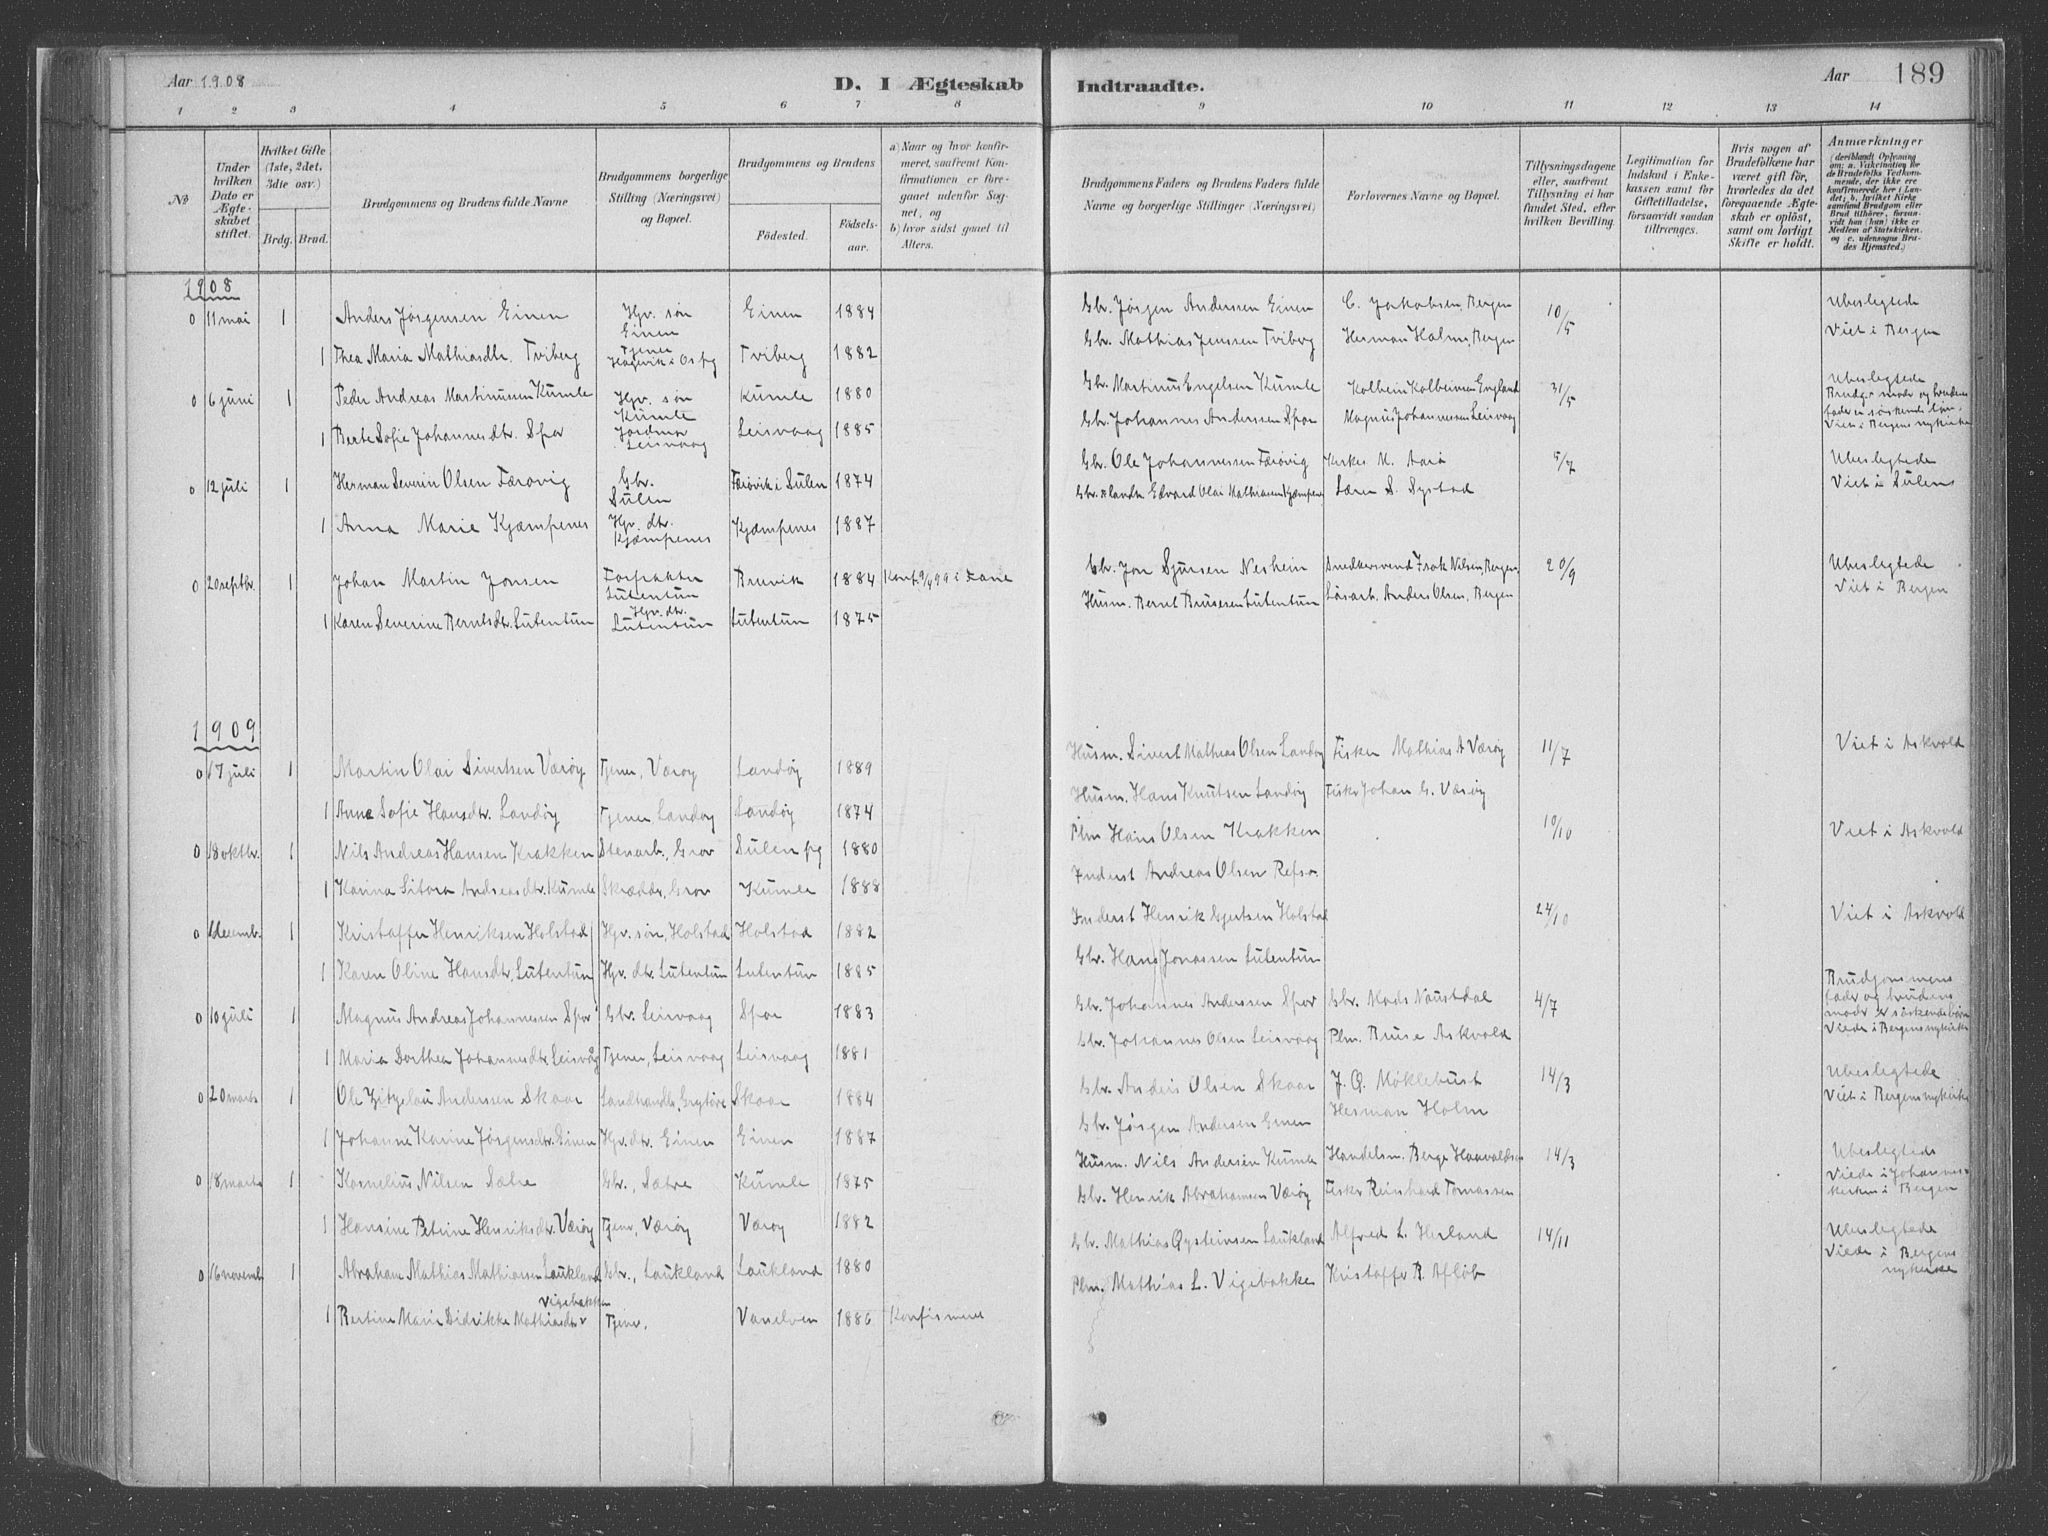 Aar 1908
D. I Ægteskab Indtraadte.
Aar 189
1 2 3 4 5 6 7 8 9 10 11 12 13 14
No
Under hvilken Dato er Ægteskabet stiftet.
Hvilket Gifte (1ste, 2det, 3die osv.)
Brdg. Brud.
Brudgommens og Brudens fulde Navne
Brudgommens borgerlige Stilling (Næringsvei) og Bopæl.
Brudgommens og Brudens
Fødested. Fødselsaar.
a) Naar og hvor konfirmeret, saafremt Konfirmationen er foregaaet udenfor Sognet, og b) hvor sidst gaaet til Alters.
Brudgommens Faders og Brudens Faders fulde Navne og borgerlige Stillinger (Næringsvei)
Forlovernes Navne og Bopæl.
Tillysningsdagene eller, saafremt Tillysning ei har fundet Sted, efter hvilken Bevilling.
Legitimation for Indskud i Enkekassen samt for Giftetilladelse, forsaavidt saadan tiltrænges.
Hvis nogen af Brudefolkene har været gift før, hvorledes da det foregaaende Ægteskab er opløst, samt om lovligt Skifte er holdt.
Anmærkninger
(deriblandt Oplysning om: a. Vakcination for de Brudefolks Vedkommende, der ikke ere konfirmerede her i Landet; b. hvilket Kirkesamfund Brudgom eller Brud tilhører, forsaavidt han (hun) ikke er Medlem af Statskirken, og c. udensogns Brudes Hjemsted.)
1908
0 11 mai 1 Anders Jørgensen Einen Hgv. søn Einen Einen 1884 Gbr. Jørgen Anderssen Einen C. Jakobsen, Bergen 10/5 Ubeslegtede
1 Thea Maria Mathiasdtr. Tviberg Tjener Hagevik i Os pg Tviberg 1882 Gbr. Mathias Jenssen Tviberg Herman Holm, Bergen Viet i Bergen
0 6 juni 1 Peder Andreas Martinussen Kumle Hgv. søn Kumle Kumle 1880 Gbr. Martinus Engelsen Kumle Kolbein Kolbeinsen England 31/5 Ubeslegtede
1 Berte Sofie Johannesdtr. Spor Jordmor Leisvaag Leisvaag 1885 Gbr. Johannes Anderssen Spor Magnus Johannessen Leisvaag Brudg. moder og brudens fader er søskende Viet i Bergens nykirke
0 12 juli 1 Herman Severin Olsen Færøvig Gbr. Sulen Færøvik i Sulen 1874 Gbr. Ole Johannessen Færøvig Kirkes. M. Aarø 5/7 Ubeslegtede
1 Anna Marie Kjæmpenes Hgv. dtr. Kjæmpenes Kjæmpenes 1887 Gbr. & landh. Edvard Olai Mathiasen Kjæmpenes Lærer S. Systad Viet i Sulen
0 20 septbr. 1 Johan Martin Jonsen Forpakter Lutentun Bruvik 1884 Konf. 9/4 99 i Fane Gbr. Jon Sjursen Neshein Snedkersvend Frak Nilsen, Bergen 20/9 Ubeslegtede
1 Karen Severine Berntsdtr. Lutentun Hgv. dtr. Lutentun Lutentun 1875 Husm. Bernt Brusesen Lutentun Løsarb. Anders Olsen, Bergen Viet i Bergen
1909
0 17 juli 1 Martin Olai Sivertsen Værøy Tjener, Værøy Landøy 1889 Husm. Sivert Mathias Olsen Landøy Fisker Mathias A. Værøy 11/7 Viet i Askvold
1 Anne Sofie Hansdtr. Landøy Tjener Landøy Landøy 1874 Husm. Hans Knutsen Landøy Fisker Johan G. Værøy
0 18 oktbr. 1 Nils Andreas Hansen Krakken Stenarb., Grov Sulen pg 1880 Plm Hans Olsen Krakken 10/10 Viet i Askvold
1 Karina Andreasdtr. Kumle Skrædder, Grov Kumle 1888 Inderst Andreas Olsen Refso.
0 decemb. 1 Kristoffer Henriksen Holstad Hgv. søn, Holstad Holstad 1882 Inderst Henrik Gjertsen Holstad 24/10 Viet i Askvold
1 Karen Oline Hansdtr. Lutentun Hgv. dtr. Lutentun Lutentun 1885 Gbr. Hans Jonassen Lutentun
0 10 juli 1 Magnus Andreas Johannessen Spor Gbr. Leisvaag Spor 1883 Gbr. Johannes Anderssen Spor Gbr. Mads Naustdal 4/7 Brudgommens fader og brudens moder er søskendebørn
1 Maria Dorthea Johannesdtr. Leisvåg Tjener, Leisvaag Leisvaag 1881 Gbr. Johannes Olsen Leisvaag Plm. Bruse Askvold Viede i Bergens nykirke
0 20 marts 1 Ole Anderssen Skaar Landhandler, Grytøre Skaar 1884 Gbr. Anders Olsen Skaar J. O. Møklebust 14/3 Ubeslegtede
1 Johanne Karine Jørgensdtr. Einen Hgv. dtr. Einen Einen 1887 Gbr. Jørgen Andersen Einen Herman Holm Viet i Bergens nykirke
0 18 marts 1 Kornelius Nilsen Sætre Gbr., Sætre Kumle 1875 Husm. Nils Andersen Kumle Handelsm. Berge Haavaldsen 14/3 Ubeslegtede
1 Hansine Petrine Henriksdtr. Værøy Tjener, Værøy Værøy 1882 Gbr. Henrik Abrahamsen Værøy Fisker Reinhard Tomassen Viede i Johanneskirken i Bergen
0 16 novemb 1 Abraham Mathias Mathiassen Laukland Gbr., Laukland Laukland 1880 Gbr. Mathias Øysteinsen Laukland Alfred L. Herland 14/11 Ubeslegtede
1 Bertine Marie Didrikke Mathiasdtr Vigebakken Tjener. Vanelven 1886 Konfirmeret Plm. Mathias L. Vigebakke Kristoffer R. Afløb Viede i Bergens nykirke